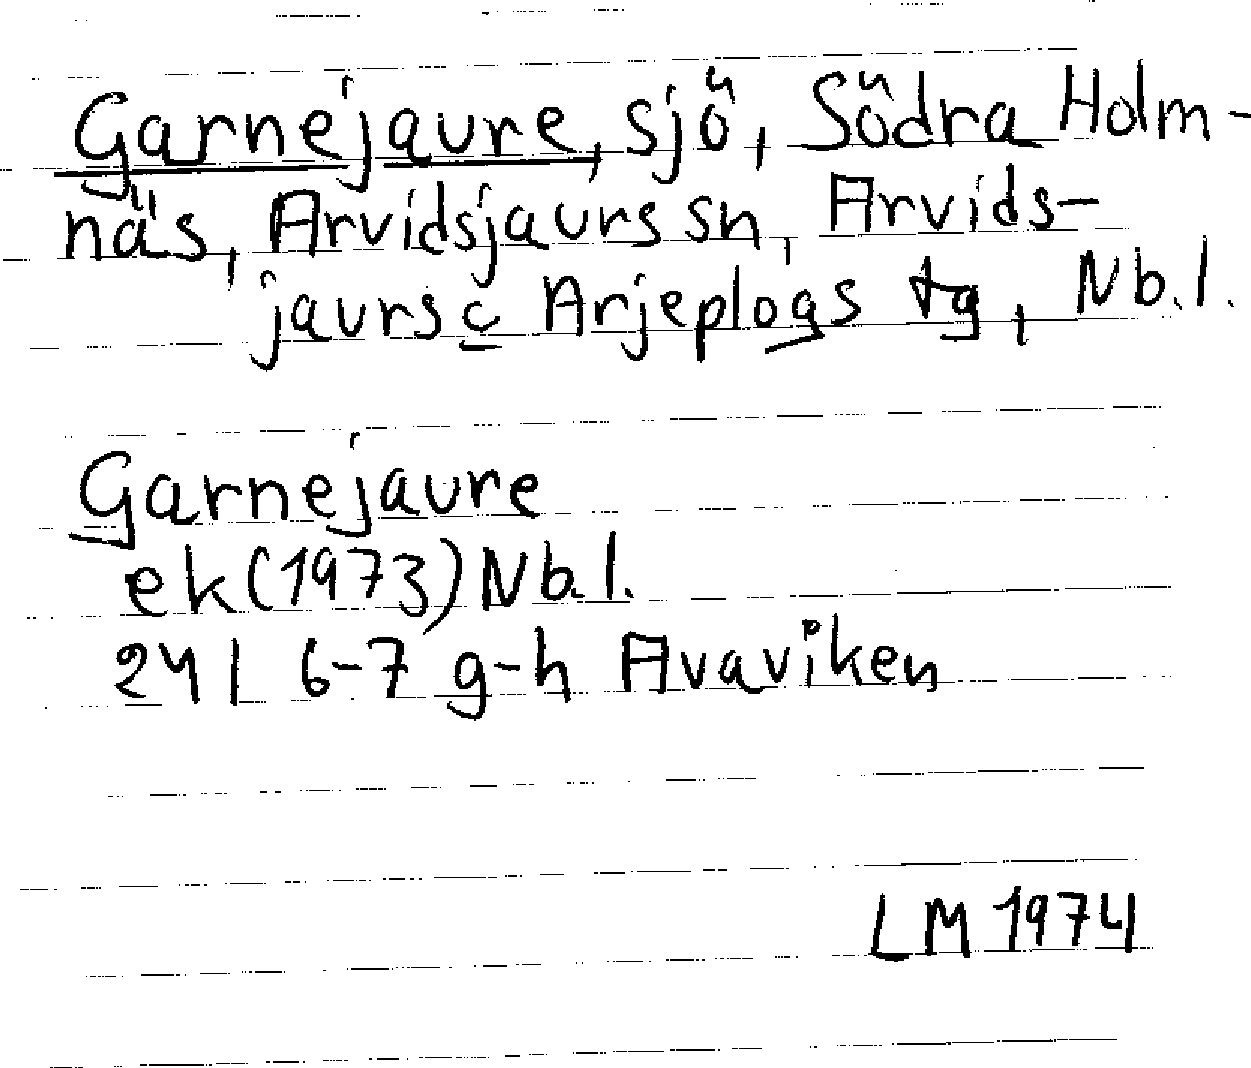 Garnejaure, sjö, Södra Holm-
näs, Arvidsjaurs sn, Arvids-
jaurs c Arjeplogs tg, Nb.l.
Garnejaure
ek (1973) Nb.l.
24 I 6-7 g-h Avaviken
LM 1974